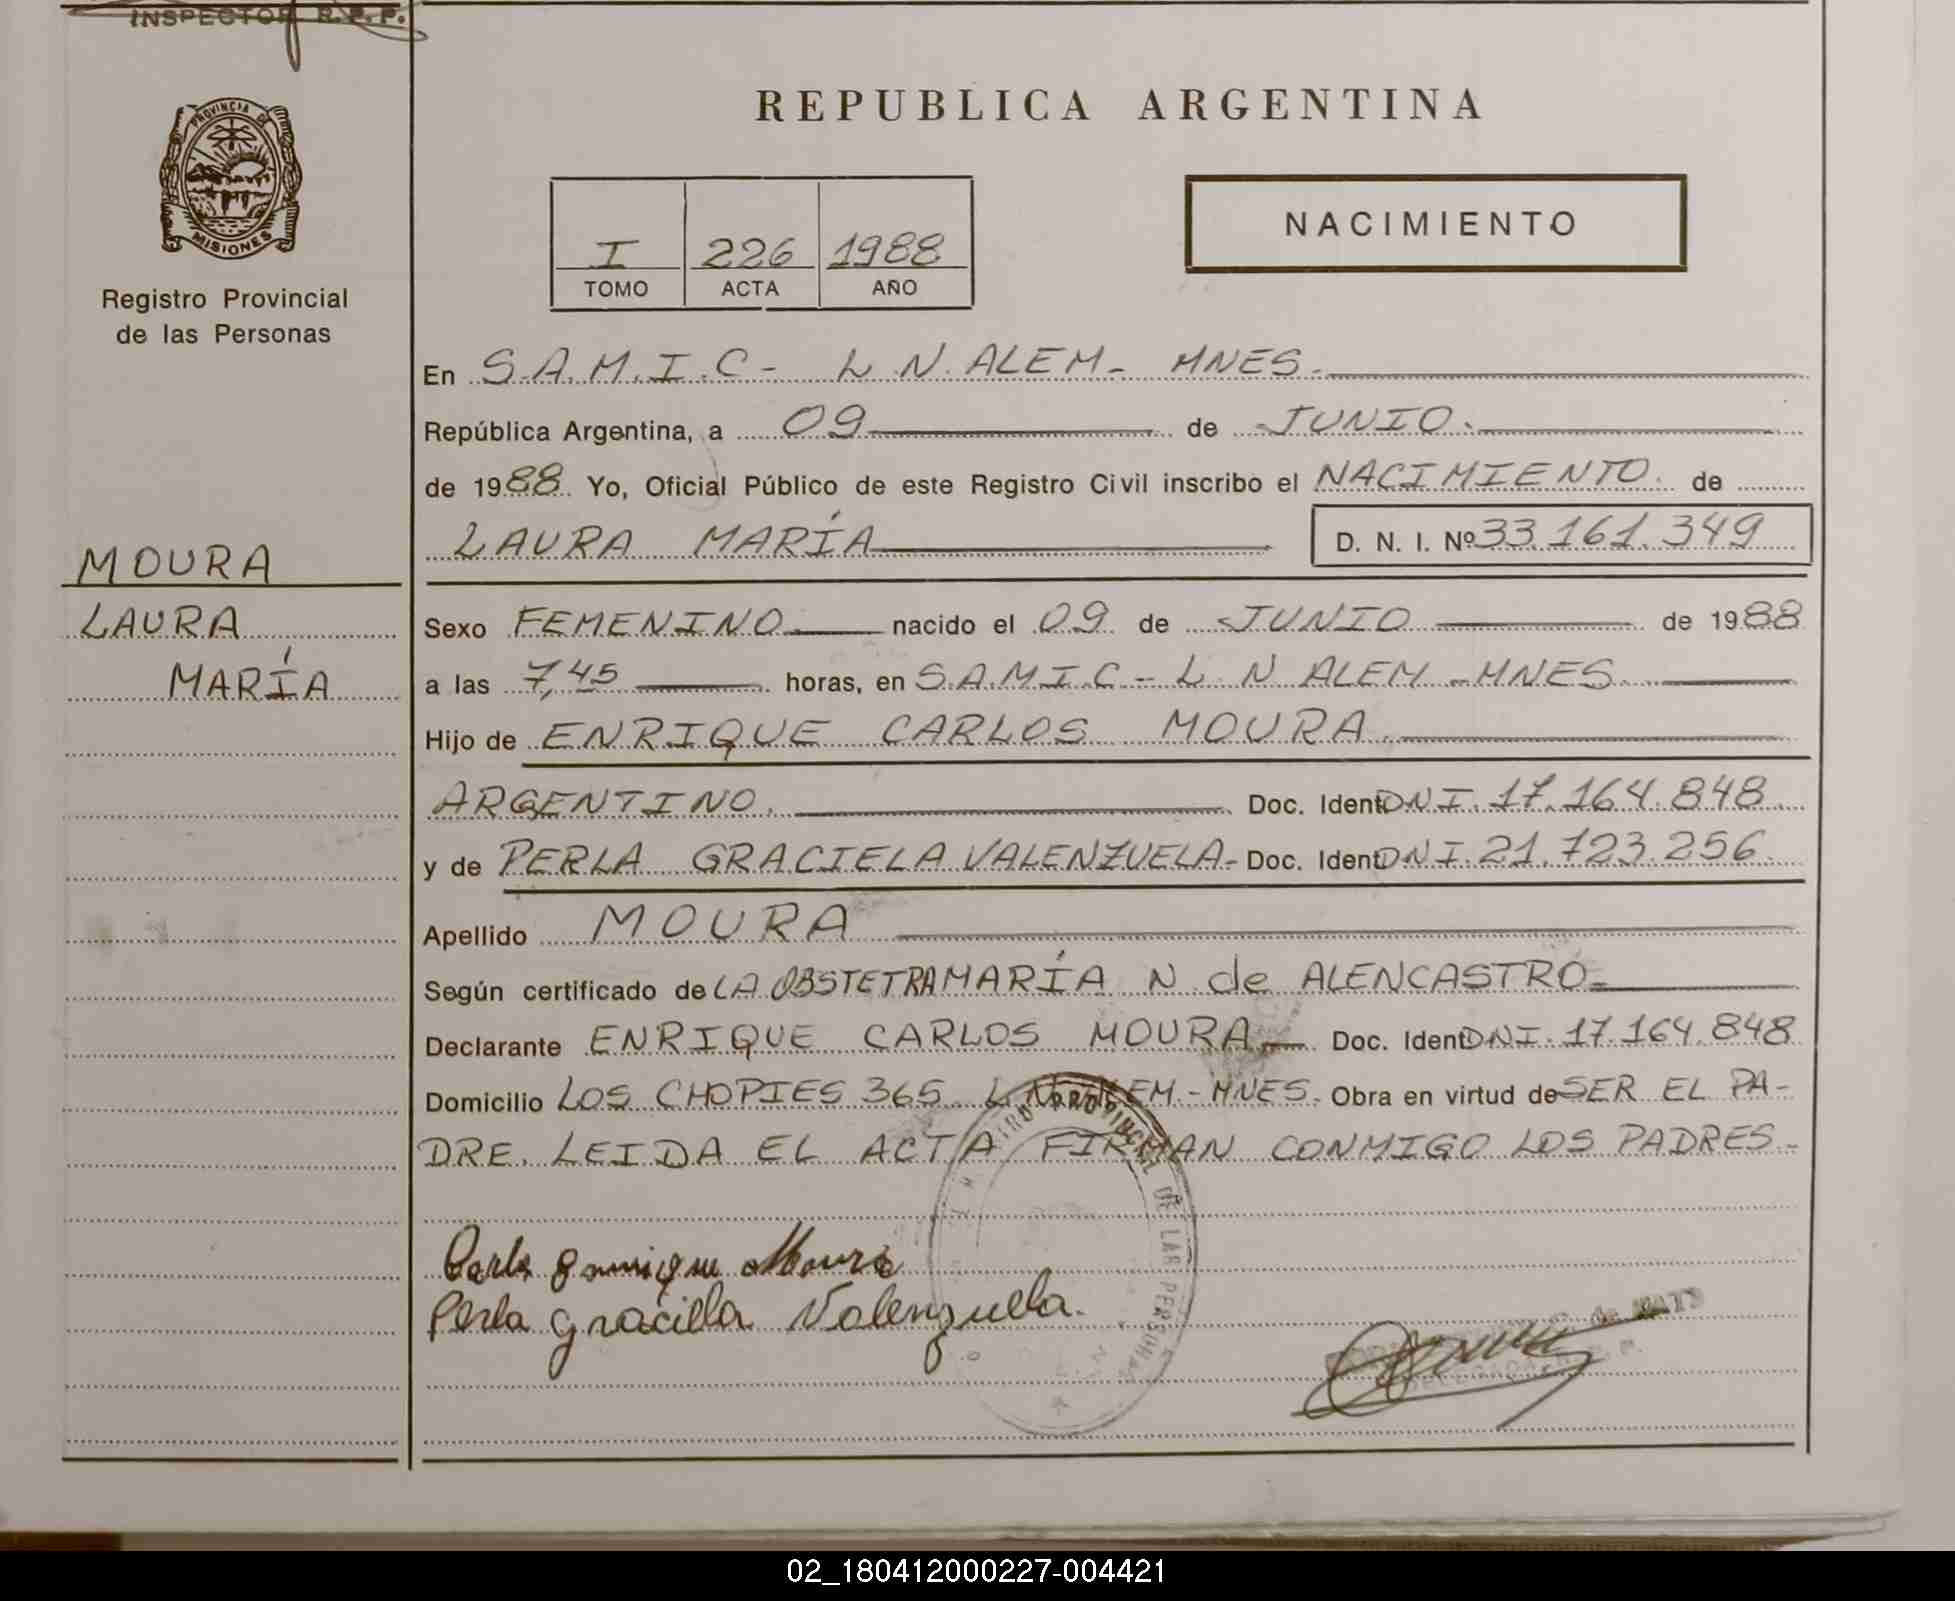 INSPECTOR R.P.P.
PROVINCIA DE
MISIONES
Registro Provincial
de las Personas
MOURA
LAURA
MARÍA
REPUBLICA ARGENTINA
I 226 1988
TOMO ACTA AÑO
NACIMIENTO
En S.A.M.I.C- L.N.ALEM- MNES.
República Argentina, a 09 de JUNIO.
de 1988. Yo, Oficial Público de este Registro Civil inscribo el NACIMIENTO. de
LAURA MARÍA D. N. I. Nº 33.161.349
Sexo FEMENINO nacido el 09 de JUNIO de 1988
a las 7,45 horas, en S.A.M.I.C - L N ALEM - MNES.
Hijo de ENRIQUE CARLOS MOURA.
ARGENTINO. Doc. Ident DNI. 17.164.848
y de PERLA GRACIELA VALENZUELA- Doc. Ident DNI. 21.723.256.
Apellido MOURA
Según certificado de LA OBSTETRA MARÍA N de ALENCASTRO-
Declarante ENRIQUE CARLOS MOURA- Doc. Ident DNI. 17.164.848
Domicilio LOS CHOPIES 365 L N ALEM - MNES. Obra en virtud de SER EL PA-
DRE. LEIDA EL ACTA FIRMAN CONMIGO LOS PADRES-
PROVINCIAL DE LAS PERSONAS
Moura
Perla Graciela Valenzuela.
02_180412000227-004421